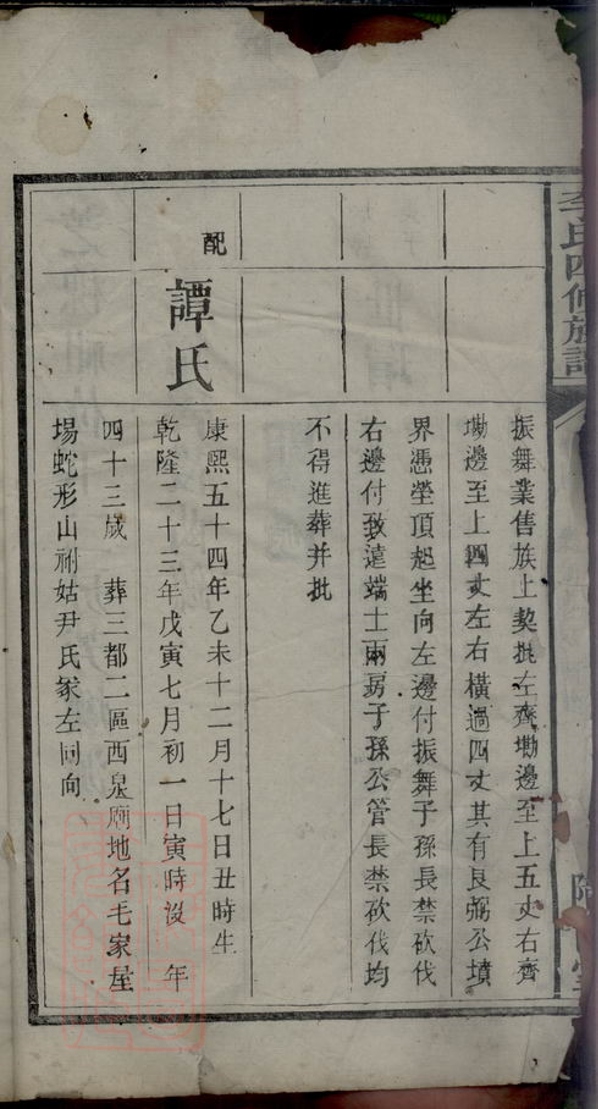 李氏四修族譜
振舞業售族上契批左齊墈邊至上五丈右齊
墈邊至上四丈左右橫過四丈其有良弼公墳
界憑塋頂起坐向左邊付振舞子孫長禁砍伐
右邊付致遠端士兩房子孫公管長禁砍伐均
不得進葬并批
配
譚氏
康熙五十四年乙未十二月十七日丑時生
乾隆二十三年戊寅七月初一日寅時沒 年
四十三歲 葬三都二區西泉廟地名毛家屋
場蛇形山祔姑尹氏冢左同向